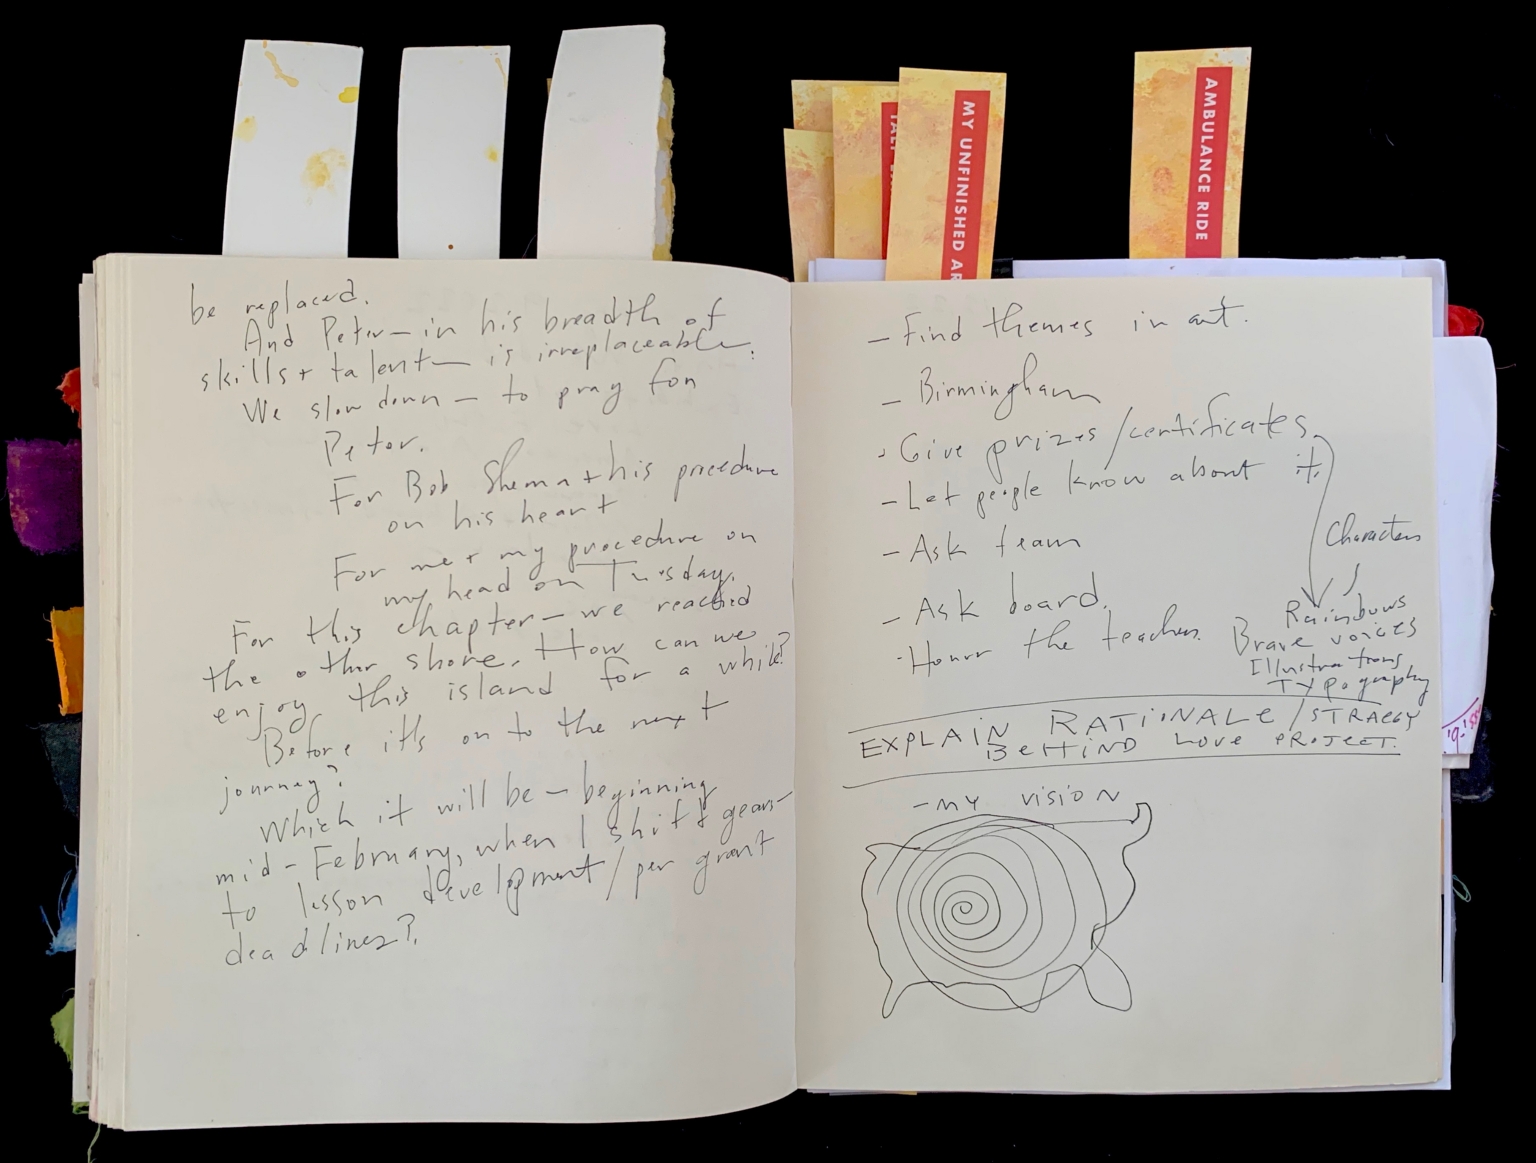 MY UNFINISHED AR
AMBULANCE RIDE
be replaced.
And Peter — in his breadth of
skills + talent — is irreplaceable.
We slow down — to pray for
Peter.
For Bob Shema + his procedure
on his heart
For me + my procedure on
my head on Tuesday.
For this chapter — we reached
the other shore. How can we
enjoy this island for a while?
Before it's on to the next
journey?
Which it will be — beginning
mid-February, when I shift gears —
to lesson development / per grant
deadlines?
- Find themes in art.
- Birmingham
- Give prizes/certificates
- Let people know about it.
- Ask team
- Ask board.
- Honor the teachers.
Characters
Rainbows
Brave voices
Illustrations
Typography
EXPLAIN RATIONALE / STRAEGY
BEHIND LOVE PROJECT.
- MY VISION